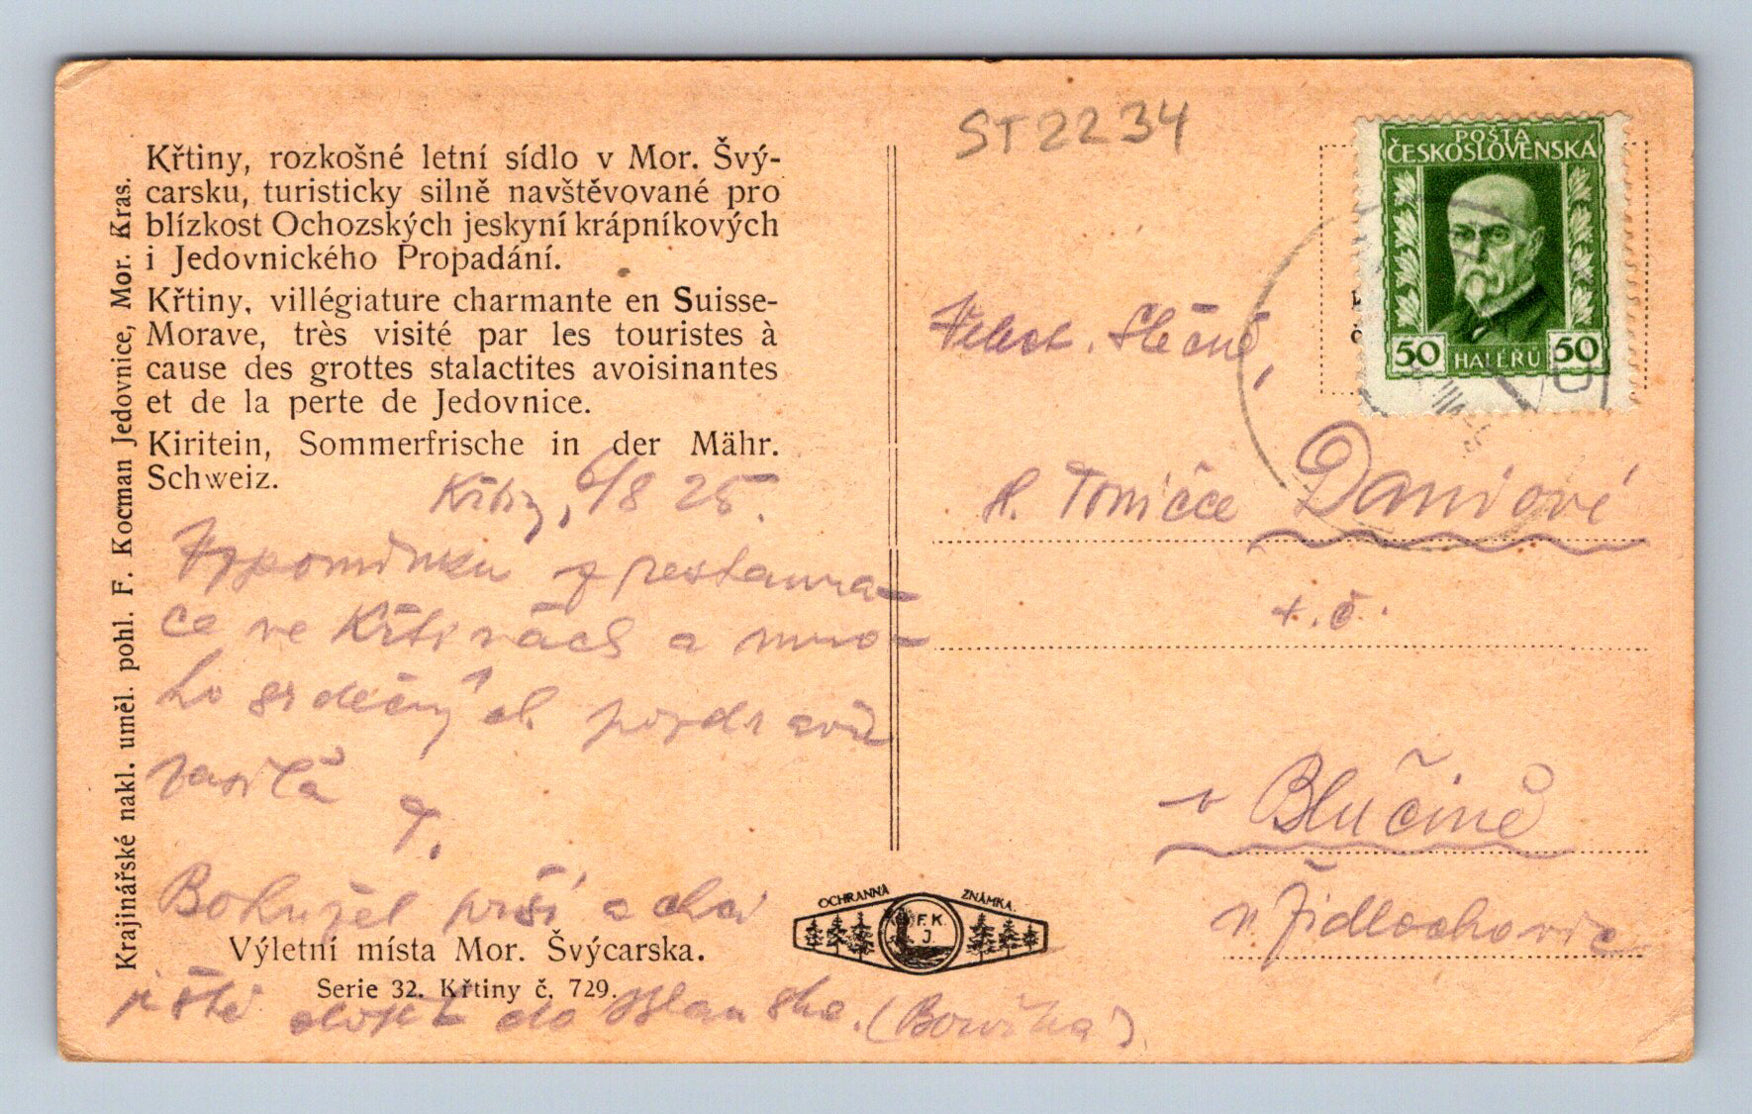 ST2234
Křtiny, rozkošné letní sídlo v Mor. Švý-
carsku, turisticky silně navštěvované pro
blízkost Ochozských jeskyní krápníkových
i Jedovnického Propadání.
Křtiny, villégiature charmante en Suisse-
Morave, très visité par les touristes à
cause des grottes stalactites avoisinantes
et de la perte de Jedovnice.
Kiritein, Sommerfrische in der Mähr.
Schweiz.
Krajinářské nakl. uměl. pohl. F. Kocman Jedovnice, Mor. Kras.
Křtiny, 6/8 25.
Vzpomínku z restaura-
ce ve Křtinách a mno-
ho srdečných pozdravů
zasílá
T.
Bohužel prší a chci
ještě dojít do Blanska.
Výletní místa Mor. Švýcarska.
Serie 32. Křtiny č. 729.
OCHRANNÁ ZNÁMKA
F. K.
J.
POŠTA
ČESKOSLOVENSKÁ
50 HALÉŘŮ 50
Velect. Slečně,
Sl. Toničce Daniové
t. č.
v Blučině
u Židlochovic